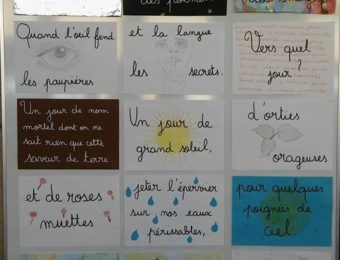 Quand l'œil fend
les paupières
et la langue
les secrets.
Vers quel
jour ?
Un jour de nom
mortel dont on ne
sait rien que cette
saveur de terre...
Un jour de
grand soleil,
d'orties
orageuses
et de roses
muettes
jeter l'épervier
sur nos eaux
périssables,
pour quelques
poignées de
ciel